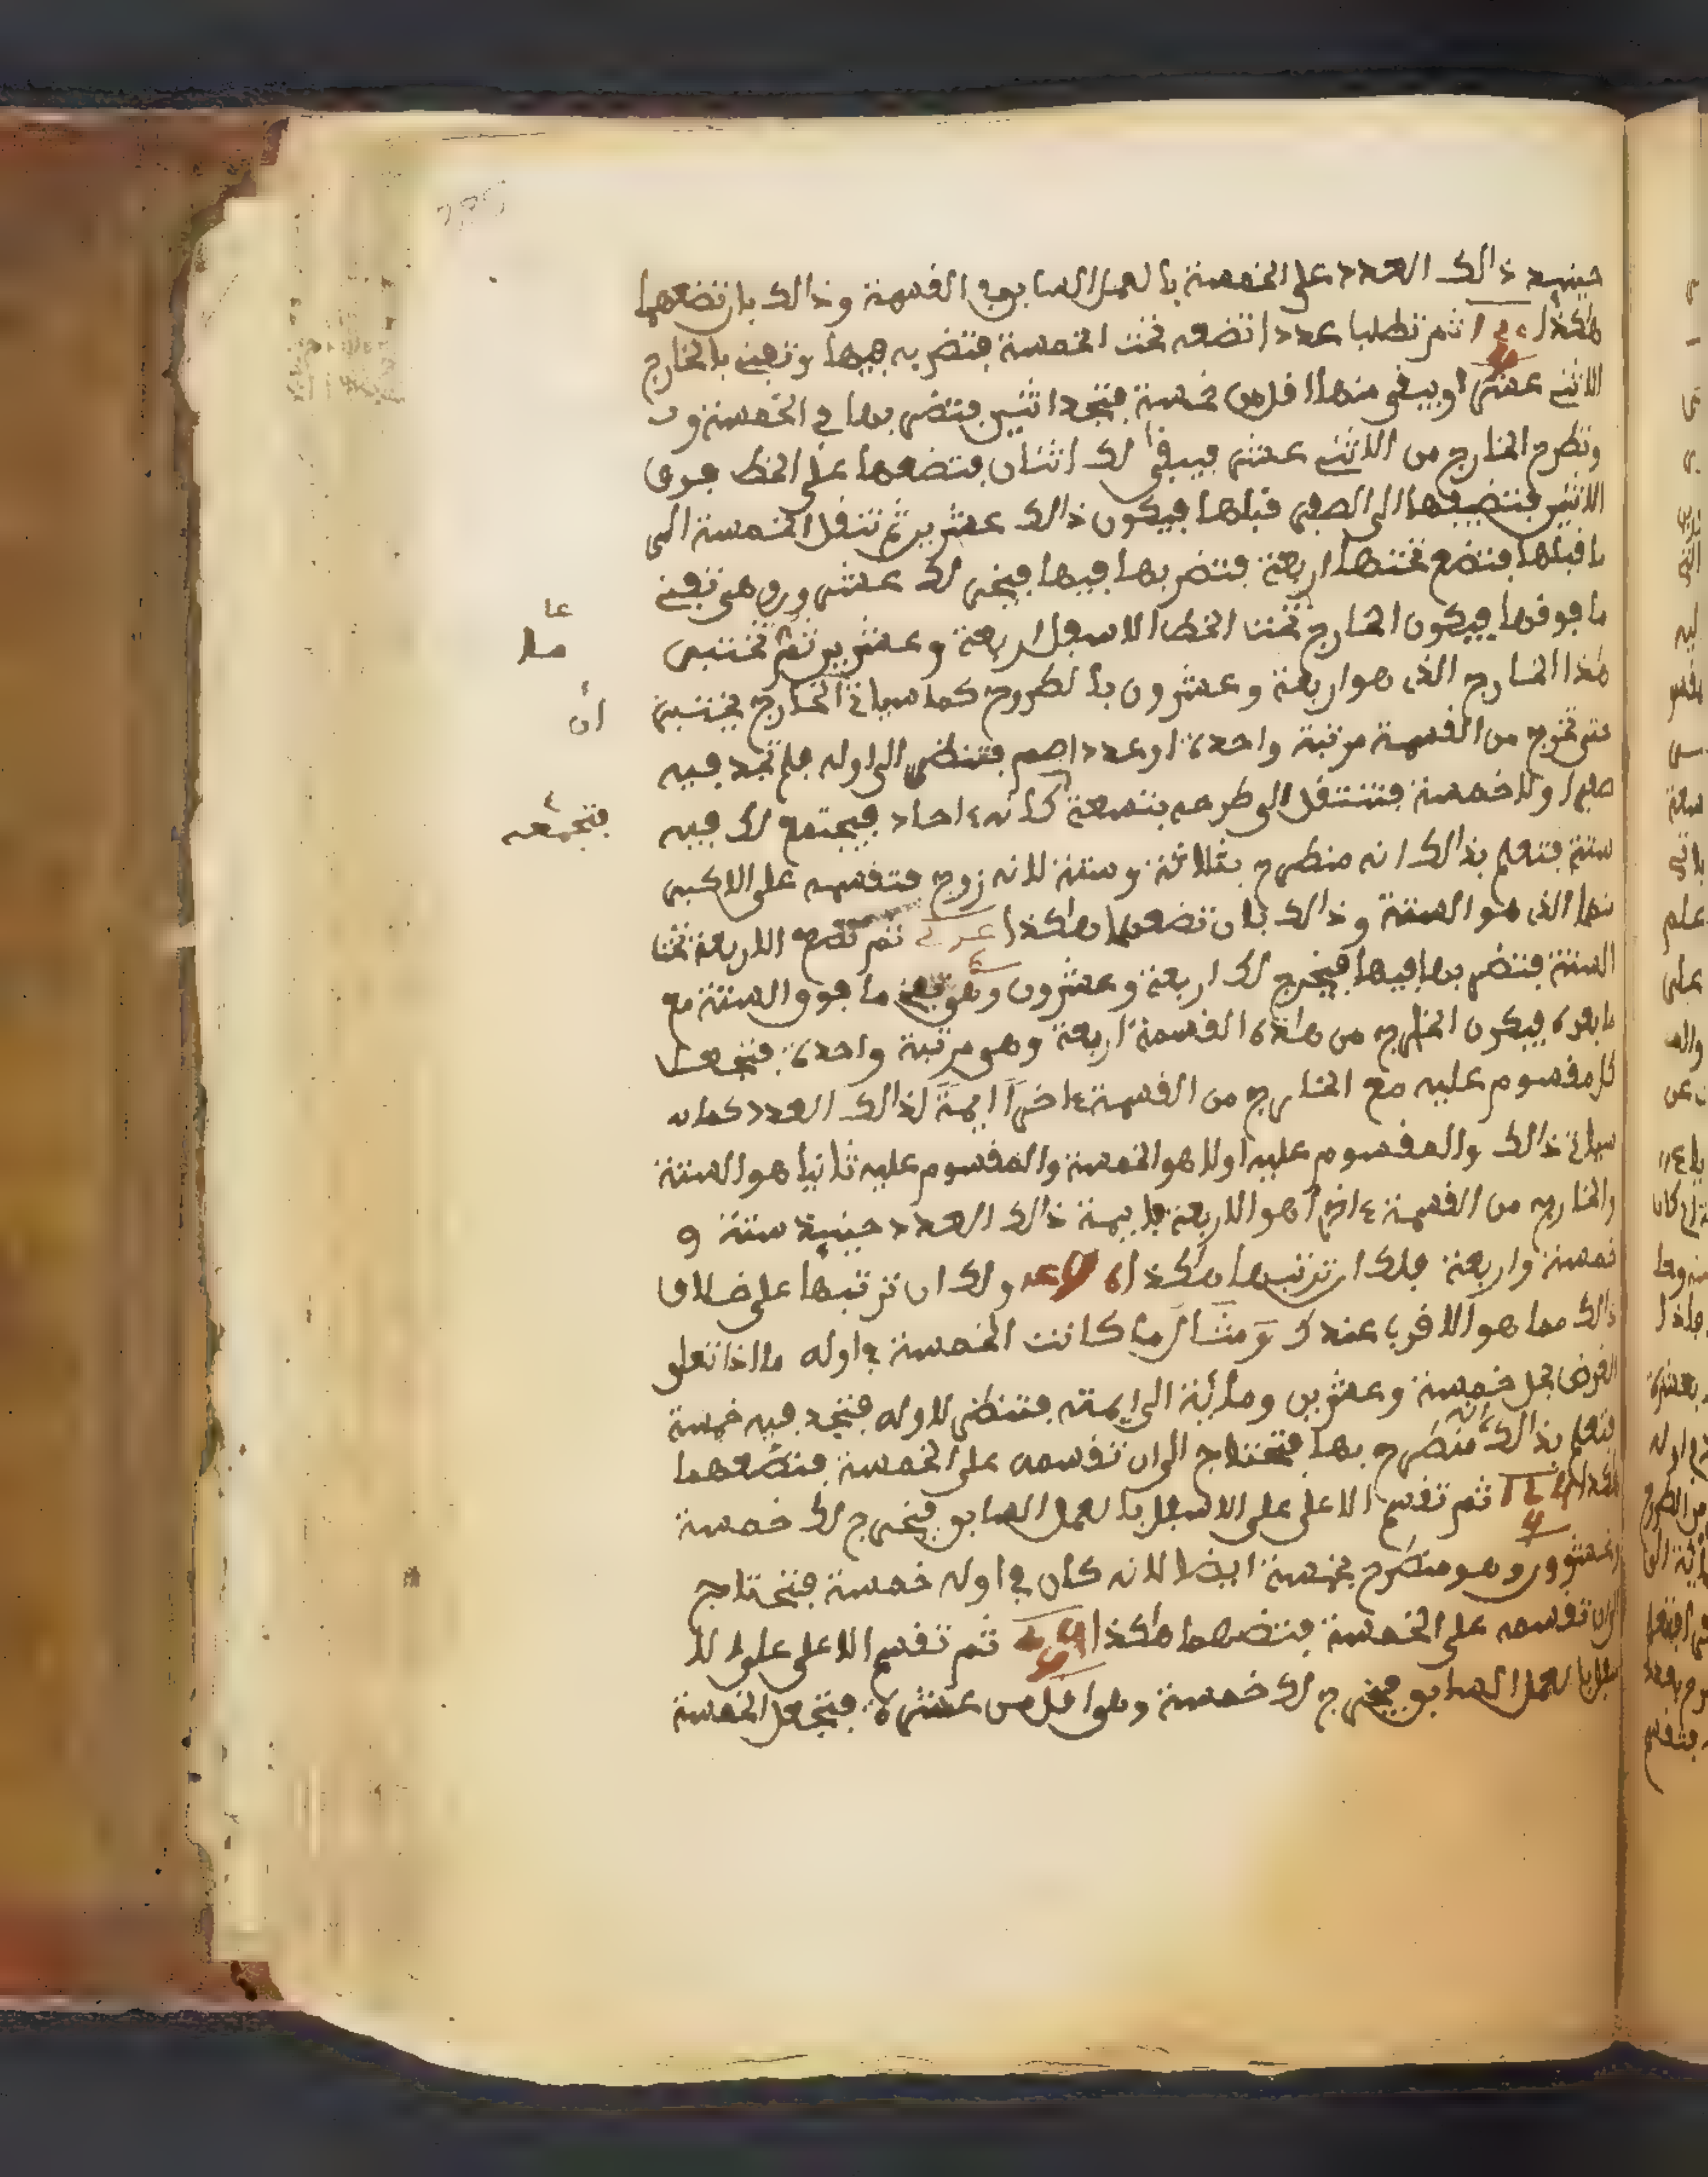 حينيذ ذالك العدد على الخمسة بالعمل السابق في القسمة وذالك بان تضعهما
هكذا ثم تطلب عددا تضعه تحت الخمسة فتضربه فيها وتفني بالخارج
الاثني عشر او يبقى منها اقل من خمسة فتجد اثنين فتضربها في الخمسة و
وتطرح الخارج من الاثني عشر فيبقى لك اثنان فتضعها على الخط فوق
الاثنين فتضيفها الى الصفر قبلها فيكون ذالك عشرين ثم تنقل الخمسة الى
ما قبلها فتضع تحتها اربعة فتضربها فيها فيخرج لك عشرون وهي تفني
ما فوقها فيكون الخارج تحت الخط الاسفل اربعة وعشرين ثم تختبر
هذا الخارج الذي هو اربعة وعشرون بالطروح كما سياتي الخارج تختبر
متى تخرج من القسمة مرتبة واحدة او عدد اصم فتنظر الى اوله فلم تجد فيه
صفرا ولا خمسة فتنتقل الى طرحه بتسعة كانه احاد فيجتمع لك فيه
ستة فتعلم بذالك انه منطرح بثلاثة وستة لانه زوج فتقسمه على الاكبر
منها الذي هو الستة وذالك بان تضعهما هكذا ثم تضع الاربعة تحت
الستة فتضربها فيها فيخرج لك اربعة وعشرون وهو تفني ما فوق الستة مع
ما بعده فيكون الخارج من هذه القسمة اربعة وهو مرتبة واحدة فتجعل
كل مقسوم عليه مع الخارج من القسمة اخرا ايمة لذالك العدد كما
سياتي ذالك والمقسوم عليه اولا هو الخمسة والمقسوم عليه ثانيا هو الستة
والخارج من القسمة اخرا هو الاربعة فايمة ذالك العدد حينيذ ستة و
خمسة واربعة فلك ان ترتبها هكذا ولك ان ترتبها على خلاف
ذالك مما هو الاقرب عندك ومثال ما كانت الخمسة في اوله ما اذا تعلق
الغرض بحل خمسة وعشرين ومائة الى ايمته فتنظر لاوله فتجد فيه خمسة
فتعلم بذالك انه منطرح بها فتحتاج الى ان تقسمه على الخمسة فتضعهما
هكذا ثم تقسم الاعلى على الاسفل بالعمل السابق فيخرج لك خمسة
وعشرون وهو منطرح بخمسة ايضا لانه كان في اوله خمسة فتحتاج
الى ان تقسمه على الخمسة فتضعهما هكذا ثم تقسم الاعلى على الا
سفل بالعمل السابق فيخرج لك خمسة وهو اقل من عشرة فتجعل الخمسة
ان
فتجمعه